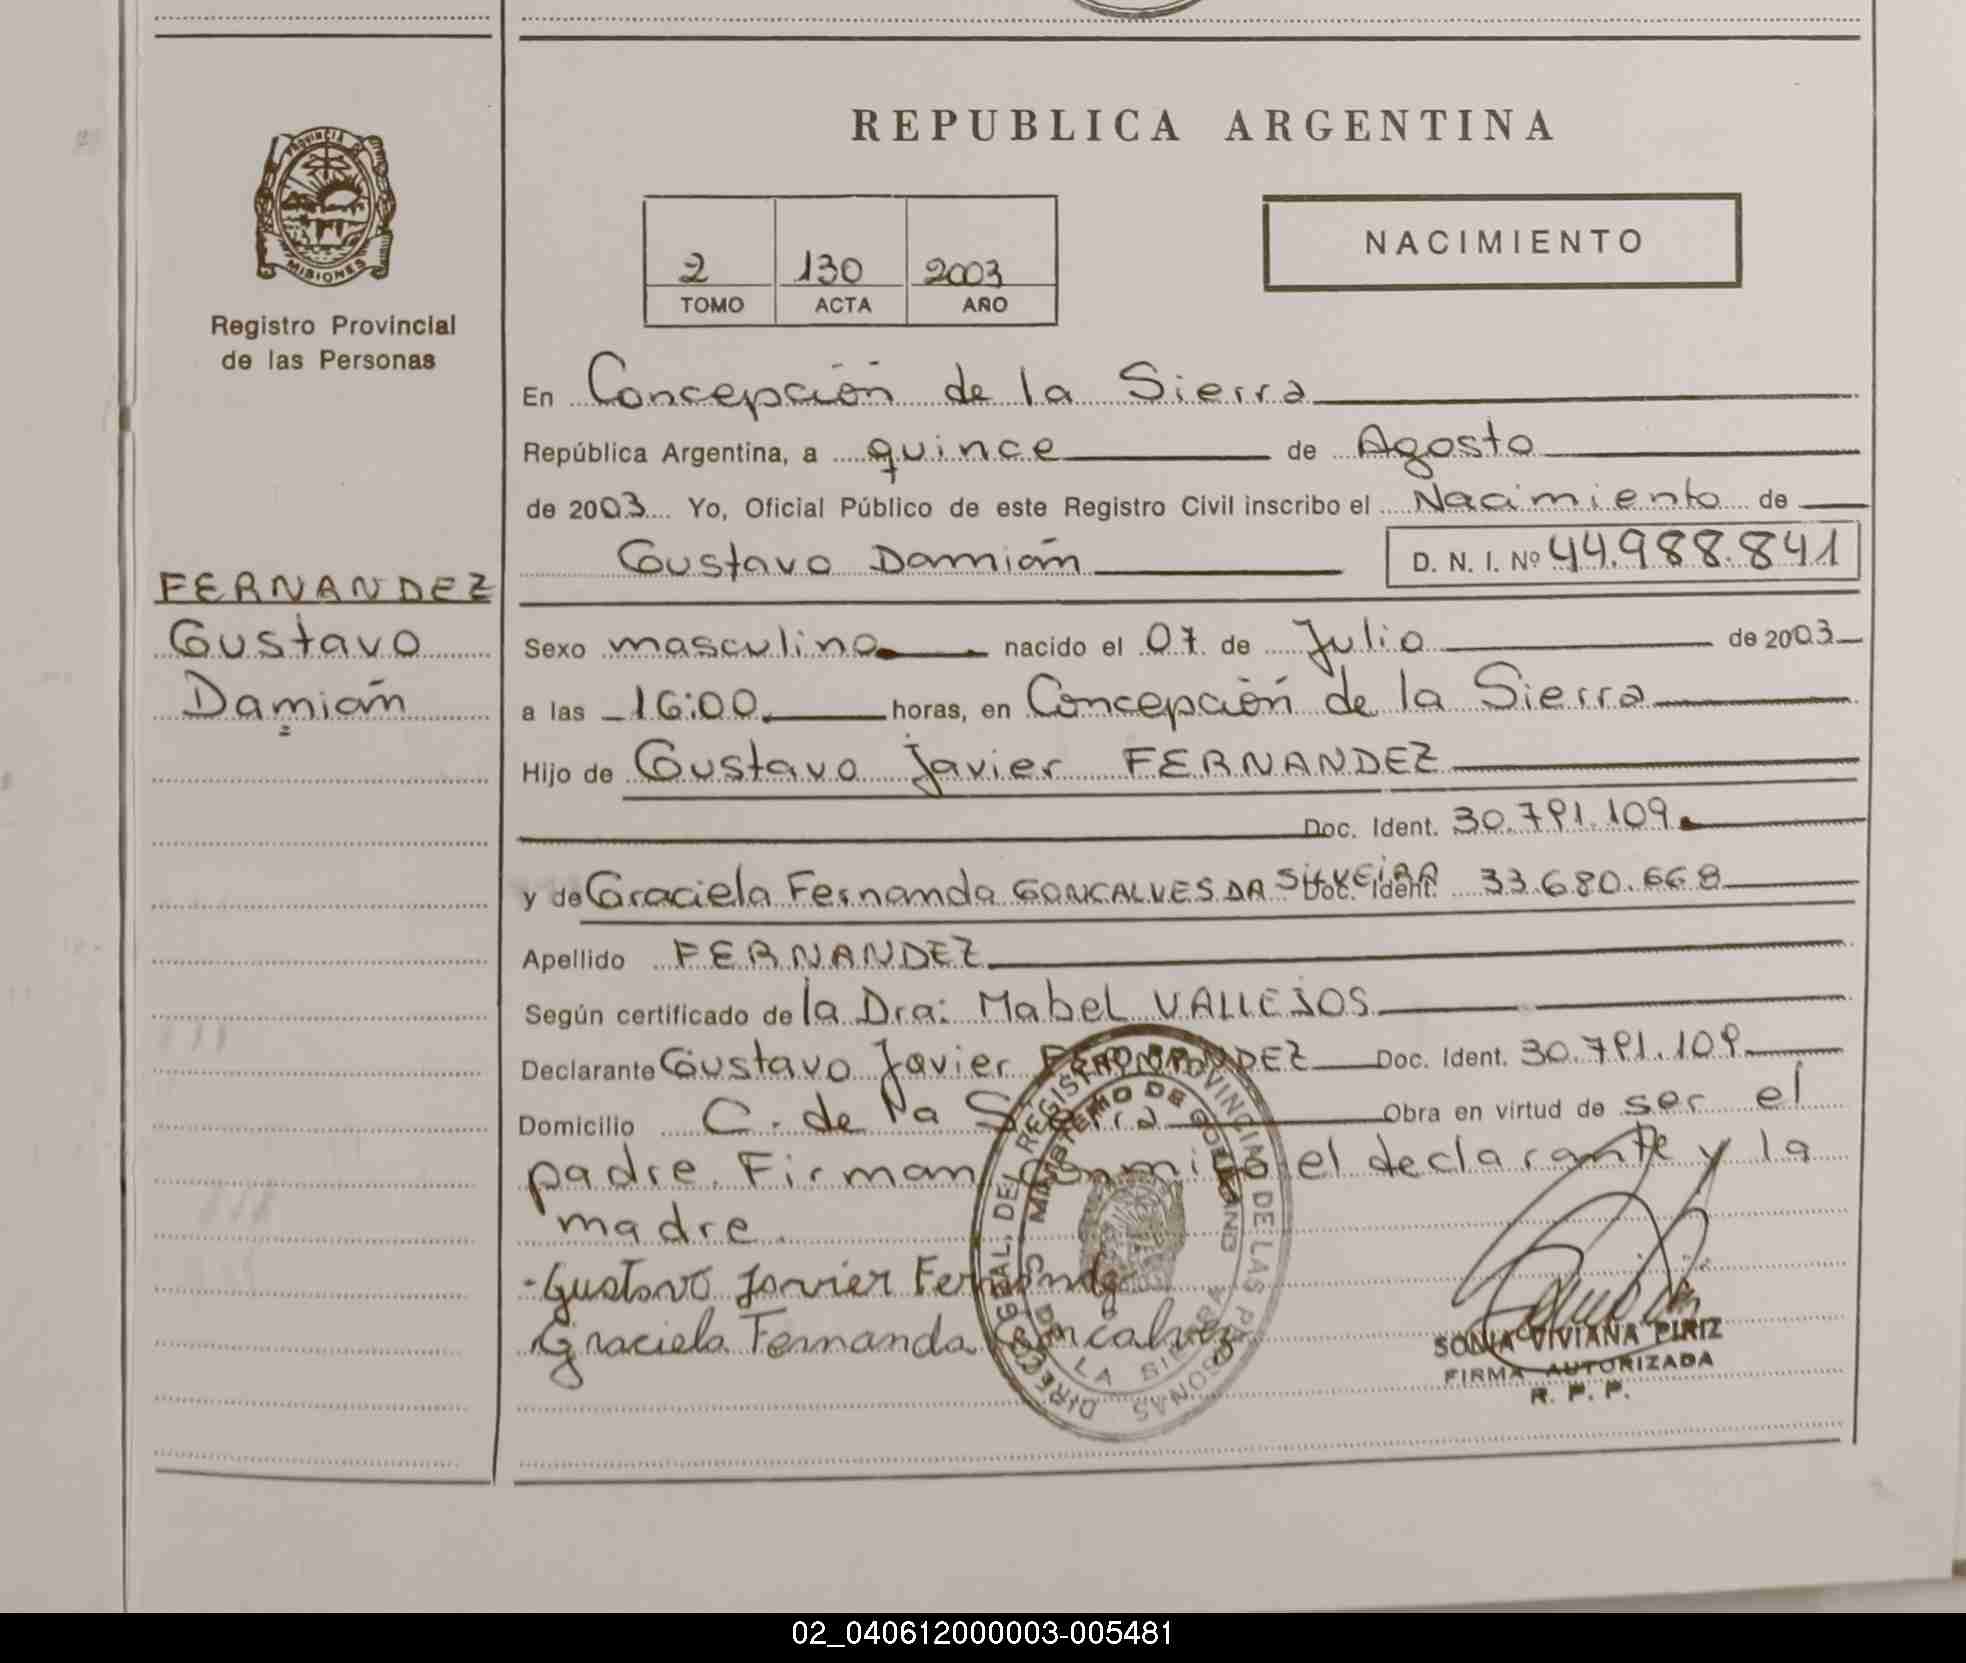 REPUBLICA ARGENTINA
PROVINCIA DE MISIONES
Registro Provincial
de las Personas
2 130 2003
TOMO ACTA AÑO
NACIMIENTO
En Concepción de la Sierra
República Argentina, a quince de Agosto
de 2003 Yo, Oficial Público de este Registro Civil inscribo el Nacimiento de
Gustavo Damián D. N. I. Nº 44.988.841
FERNANDEZ
Gustavo
Damián
Sexo masculino nacido el 07 de Julio de 2003
a las 16:00 horas, en Concepción de la Sierra
Hijo de Gustavo Javier FERNANDEZ
Doc. Ident. 30.791.109
y de Graciela Fernanda GONCALVES DA SILVEIRA Doc. Ident. 33.680.668
Apellido FERNANDEZ
Según certificado de la Dra: Mabel VALLEJOS
Declarante Gustavo Javier FERNANDEZ Doc. Ident. 30.791.109
Domicilio C. de la Sierra Obra en virtud de ser el
padre. Firman conmigo el declarante y la
madre.
- Gustavo Javier Fernandez
Graciela Fernanda Goncalvez
DIRECC. GRAL. DEL REGISTRO PROVINCIAL DE LAS PERSONAS
MINISTERIO DE GOBIERNO
DE LA SIERRA
SONIA VIVIANA PIRIZ
FIRMA AUTORIZADA
R. P. P.
02_040612000003-005481